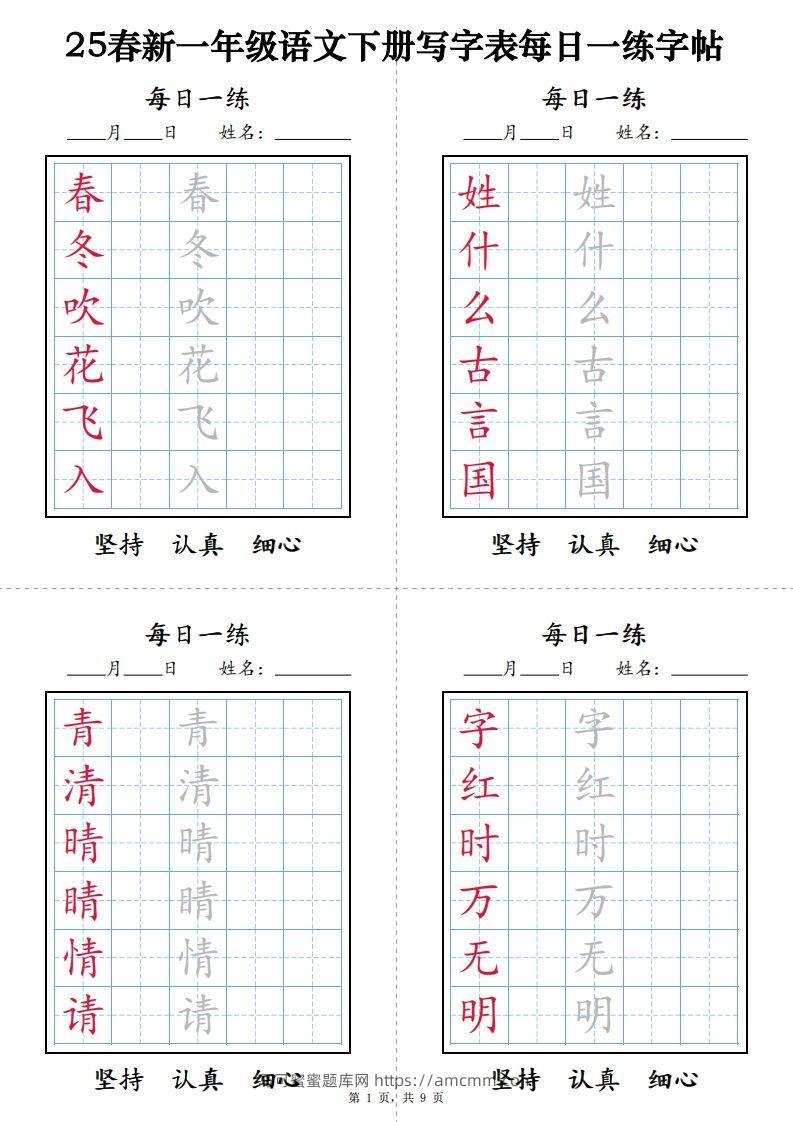 25春新一年级语文下册写字表每日一练字帖
每日一练
____月____日 姓名：________
春 春
冬 冬
吹 吹
花 花
飞 飞
入 入
坚持 认真 细心
每日一练
____月____日 姓名：________
姓 姓
什 什
么 么
古 古
言 言
国 国
坚持 认真 细心
每日一练
____月____日 姓名：________
青 青
清 清
晴 晴
睛 睛
情 情
请 请
坚持 认真 细心
每日一练
____月____日 姓名：________
字 字
红 红
时 时
万 万
无 无
明 明
坚持 认真 细心
蜜蜜题库网 https://amcmm.
第 1 页，共 9 页